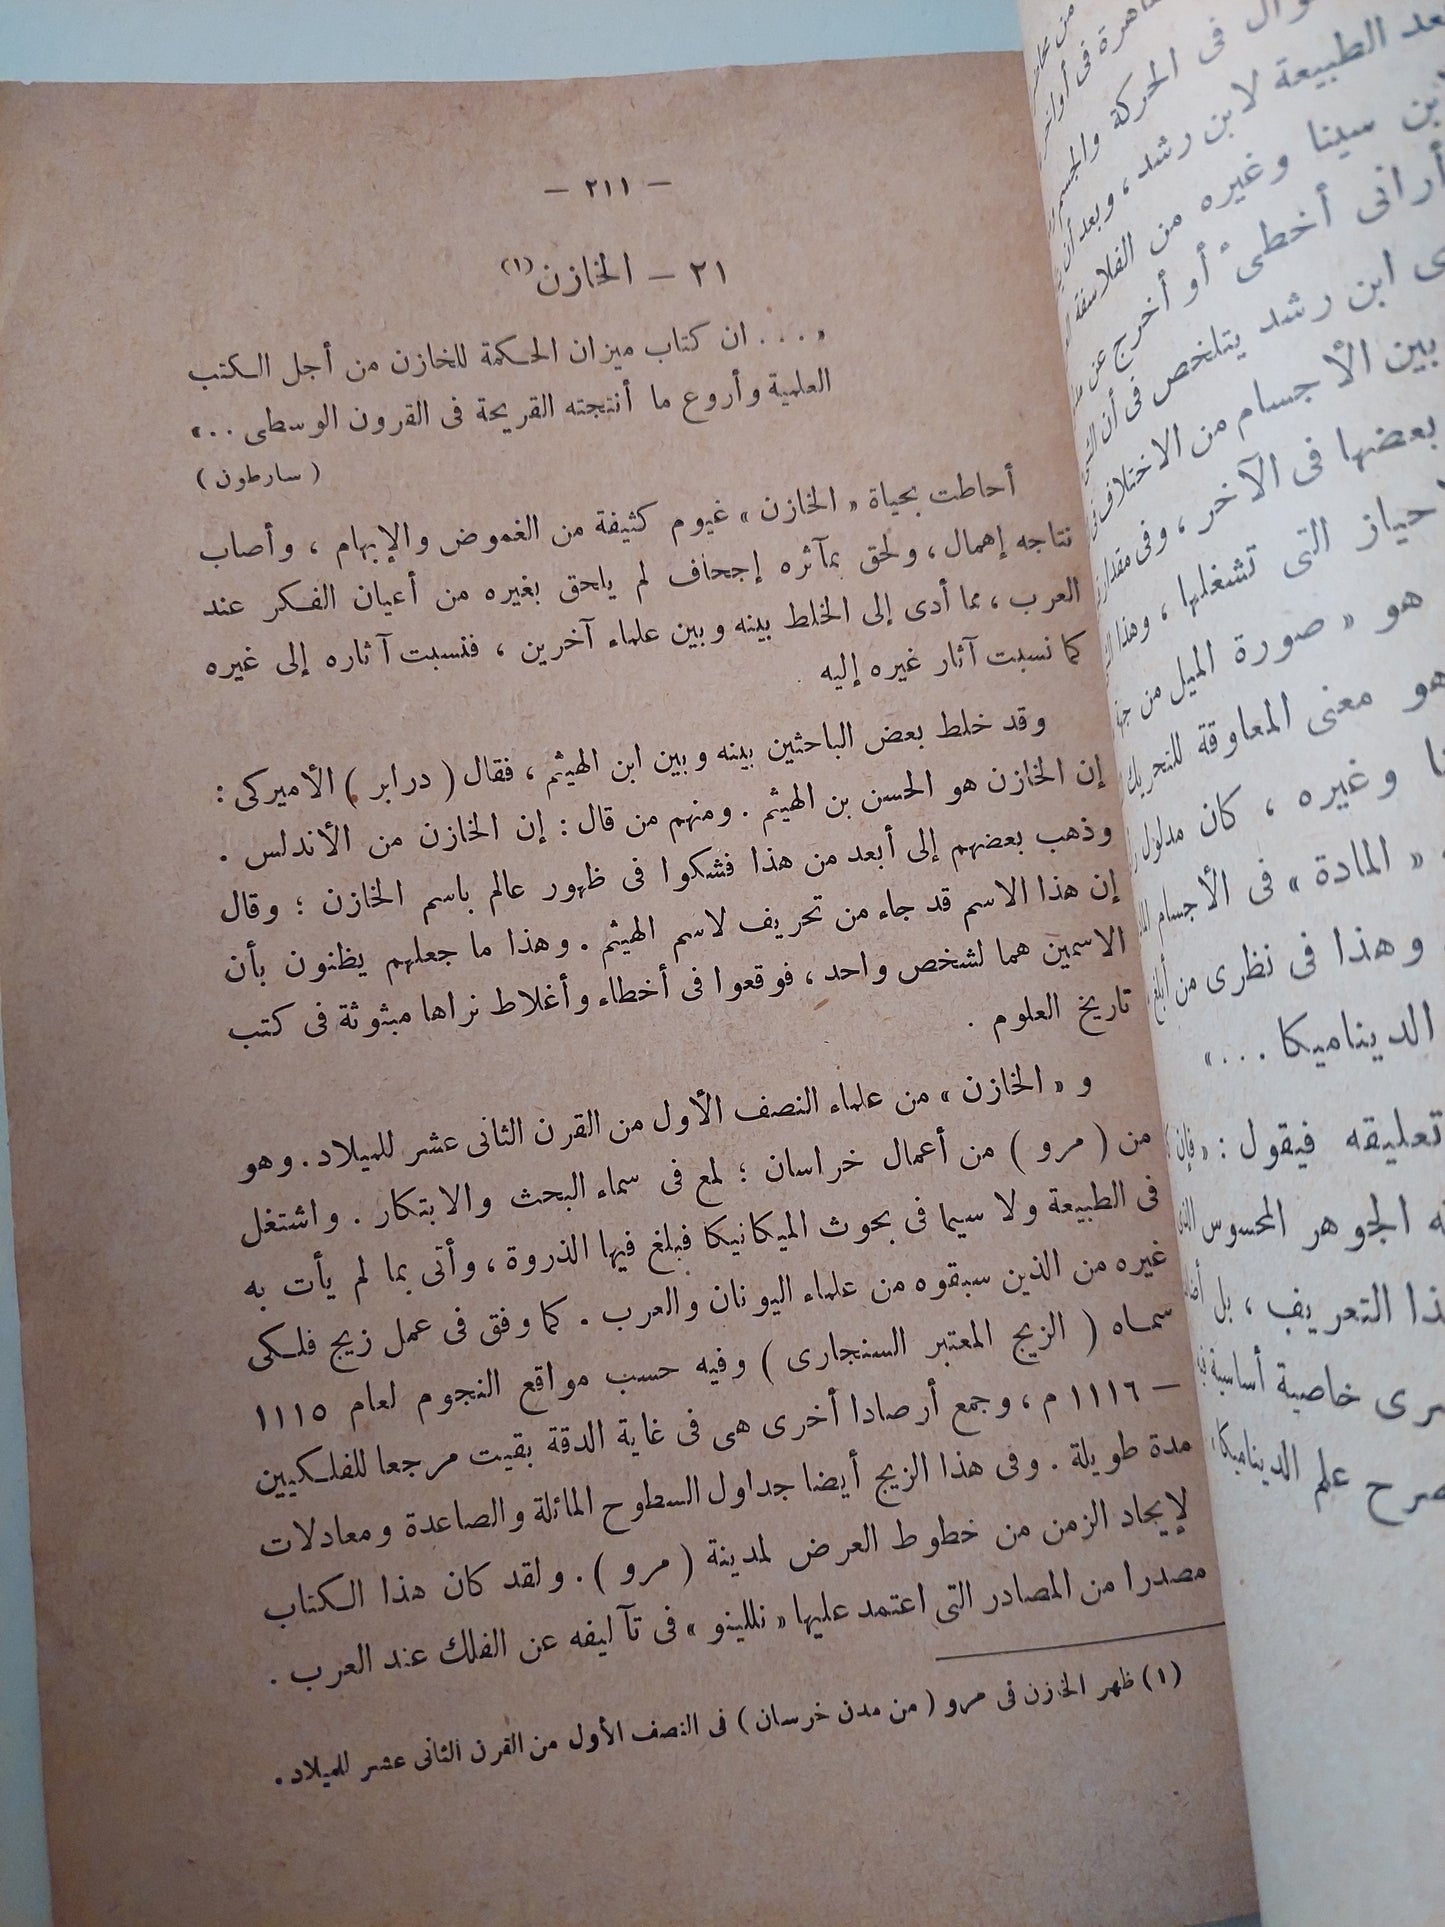 — ٢١١ —
٢١ — الخازن (١)
« . . . . ان كتاب ميزان الحكمة للخازن من أجل الكتب
العلمية وأروع ما أنتجته القريحة فى القرون الوسطى . . . »
( سارطون )
أحاطت بحياة « الخازن » غيوم كثيفة من الغموض والإبهام ، وأصاب
نتاجه إهمال ، ولحق بمآثره إجحاف لم يلحق بغيره من أعيان الفكر عند
العرب ، مما أدى إلى الخلط بينه وبين علماء آخرين ، فنسبت آثاره إلى غيره
كما نسبت آثار غيره إليه .
وقد خلط بعض الباحثين بينه وبين ابن الهيثم ، فقال ( درابر ) الأميركى :
إن الخازن هو الحسن بن الهيثم . ومنهم من قال : إن الخازن من الأندلس .
وذهب بعضهم إلى أبعد من هذا فشكوا فى ظهور عالم باسم الخازن ؛ وقال
إن هذا الاسم قد جاء من تحريف لاسم الهيثم . وهذا ما جعلهم يظنون بأن
الاسمين هما لشخص واحد ، فوقعوا فى أخطاء وأغلاط نراها مبثوثة فى كتب
تاريخ العلوم .
و « الخازن » من علماء النصف الأول من القرن الثانى عشر للميلاد . وهو
من ( مرو ) من أعمال خراسان ؛ لمع فى سماء البحث والابتكار . واشتغل
فى الطبيعة ولا سيما فى بحوث الميكانيكا فبلغ فيها الذروة ، وأتى بما لم يأت به
غيره من الذين سبقوه من علماء اليونان والعرب . كما وفق فى عمل زيج فلكى
سماه ( الزيج المعتبر السنجارى ) وفيه حسب مواقع النجوم لعام ١١١٥
— ١١١٦ م ، وجمع أرصادا أخرى هى فى غاية الدقة بقيت مرجعا للفلكيين
مدة طويلة . وفى هذا الزيج أيضا جداول السطوح المائلة والصاعدة ومعادلات
لإيجاد الزمن من خطوط العرض لمدينة ( مرو ) . ولقد كان هذا الكتاب
مصدرا من المصادر التى اعتمد عليها « نللينو » فى تآليفه عن الفلك عند العرب .
(١) ظهر الخازن فى مرو ( من مدن خرسان ) فى النصف الأول من القرن الثانى عشر للميلاد .
فى الحركة والجسم
بعد الطبيعة لابن رشد ، وبعد أن
ابن سينا وغيره من الفلاسفة
أرانى أخطىء أو أخرج عن
ابن رشد يتلخص فى أن
بين الأجسام من الاختلاف
بعضها فى الآخر ، وفى
التى تشغلها ، وهذا
هو « صورة الميل من
هو معنى المعاوقة للتحريك
وغيره ، كان مدلول
« المادة » فى الأجسام
وهذا فى نظرى من
الديناميكا . . . »
تعليقه فيقول : « فإن
الجوهر المحسوس
التعريف ، بل
خاصية أساسية
صرح علم الديناميكا